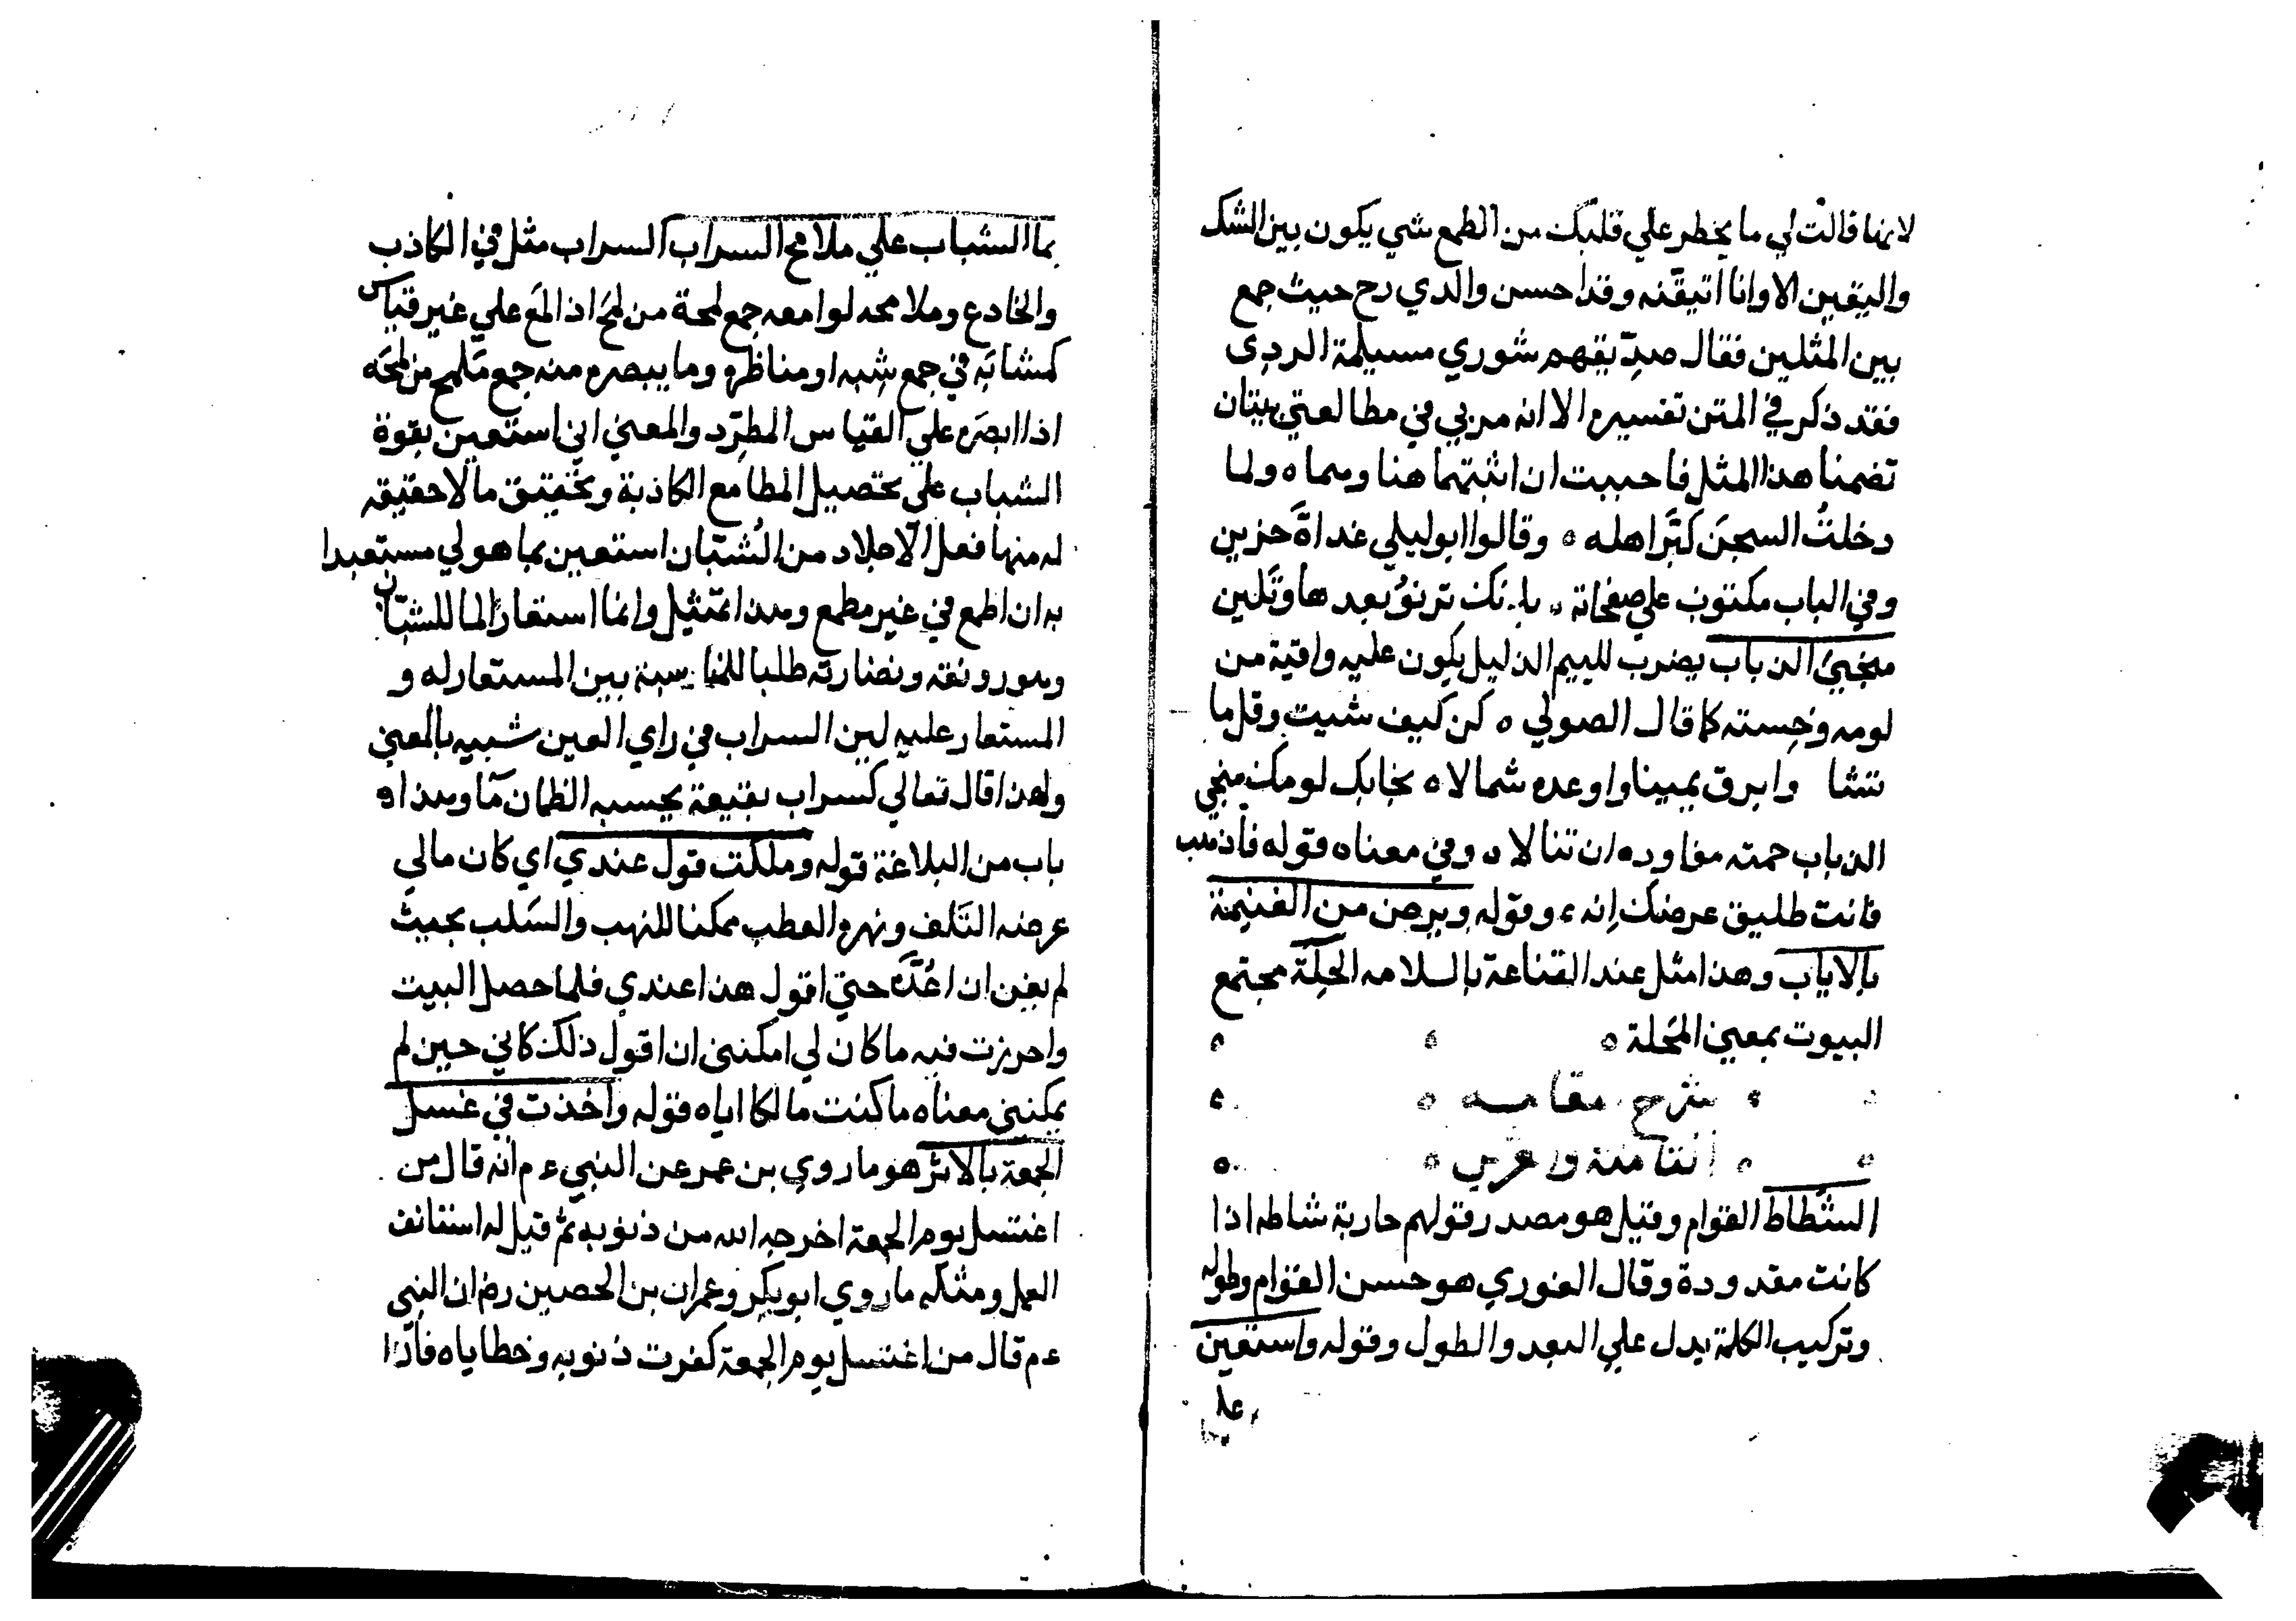 لانها قالت لي ما يخطر علي قلبك من الطمع شي يكون بين الشك
واليقين الا وانا اتيقنه وقد احسن والدي رح حيث جمع
بين المثلين فقال صدّ يقهم شوري مسيلمة الردي
فقد ذكر في المتن تفسيره الا انه مر بي في مطالعتي بيتان
تضمنا هذا المثل فاحببت ان اثبتهما هنا وهما ه ولما
دخلتُ السجن كبّر اهله ه وقالوا ابو ليلي غداةَ حزين
وفي الباب مكتوب علي صفحاته ه بانك تنزو بعدها وتلين
منجيَ الذباب يضرب للئيم الذليل يكون عليه واقية من
لومه وخسته كما قال الصولي ه كن كيف شيت وقل ما
تشا وابرق يمينا واوعده شمالا ه نجابك لومك منجي
الذباب حمته مقاوده ان تنالا ه وفي معناه قوله فاذهب
فانت طليق عرضك انه ه وقوله ويرض من الغنيمة
بالاياب وهذا مثل عند القناعة بالسلامه الحِلّة مجتمع
البيوت بمعني المَحلة ه
شرح مقامه
الثامنة
الشَطاط القوام وقيل هو مصدر قولهم جارية شاطه اذا
كانت مقدودة وقال الغوري هو حسن القوام وطوله
وتركيب الكلمة يدل علي البعد والطول وقوله واستعين
بما الشباب علي ملامح السراب السراب مثل في الكاذب
والخادع وملامحه لوامعه جمع لمحة من لمح اذا لمع علي غير قياس
كمشابَه في جمع شبه او مناظره وما يبصره منه جمع مَلمح من لمحَه
اذا ابصَره علي القياس المطرّد والمعني اني استعين بقوة
الشباب علي تحصيل المطامع الكاذبة وتحقيق ما لا حقيقه
له منها فعل الاجلاد من الشبّان استعين بما هو لي مستعبدا
به ان اطمع في غير مطمع وهذا تمثيل وانما استعار الما للشبان
وهو رونقه ونضارته طلبا للمناسبة بين المستعار له و
المستعار عليه لان السراب في راي العين شبيه بالمعين
ولهذا قال تعالي كسراب بقيعة يحسبه الظمان مآ وهذا ه
باب من البلاغة قوله وملكت قول عندي اي كان مالي
عرضه التَلف ونهره العطب ممكنا للنهب والسَلب بحيث
لم يعن ان اعُدّه حتي اقول هذا عندي فلما حصل البيت
واحرزت فيه ما كان لي امكنني ان اقول ذلك كاني حين لم
يمكنني معناه ما كنت مالكا اياه قوله واخذت في غسل
الجمعة بالاثر هو ما روي بن عمر عن النبي ءم انه قال من
اغتسل يوم الجمعة اخرجه الله من ذنوبه ثم قيل له استانف
العمل ومثله ما روي ابو بكر وعمران بن الحصين رض ان النبي
ءم قال من اغتسل يوم الجمعة كفرت ذنوبه وخطاياه فاذا